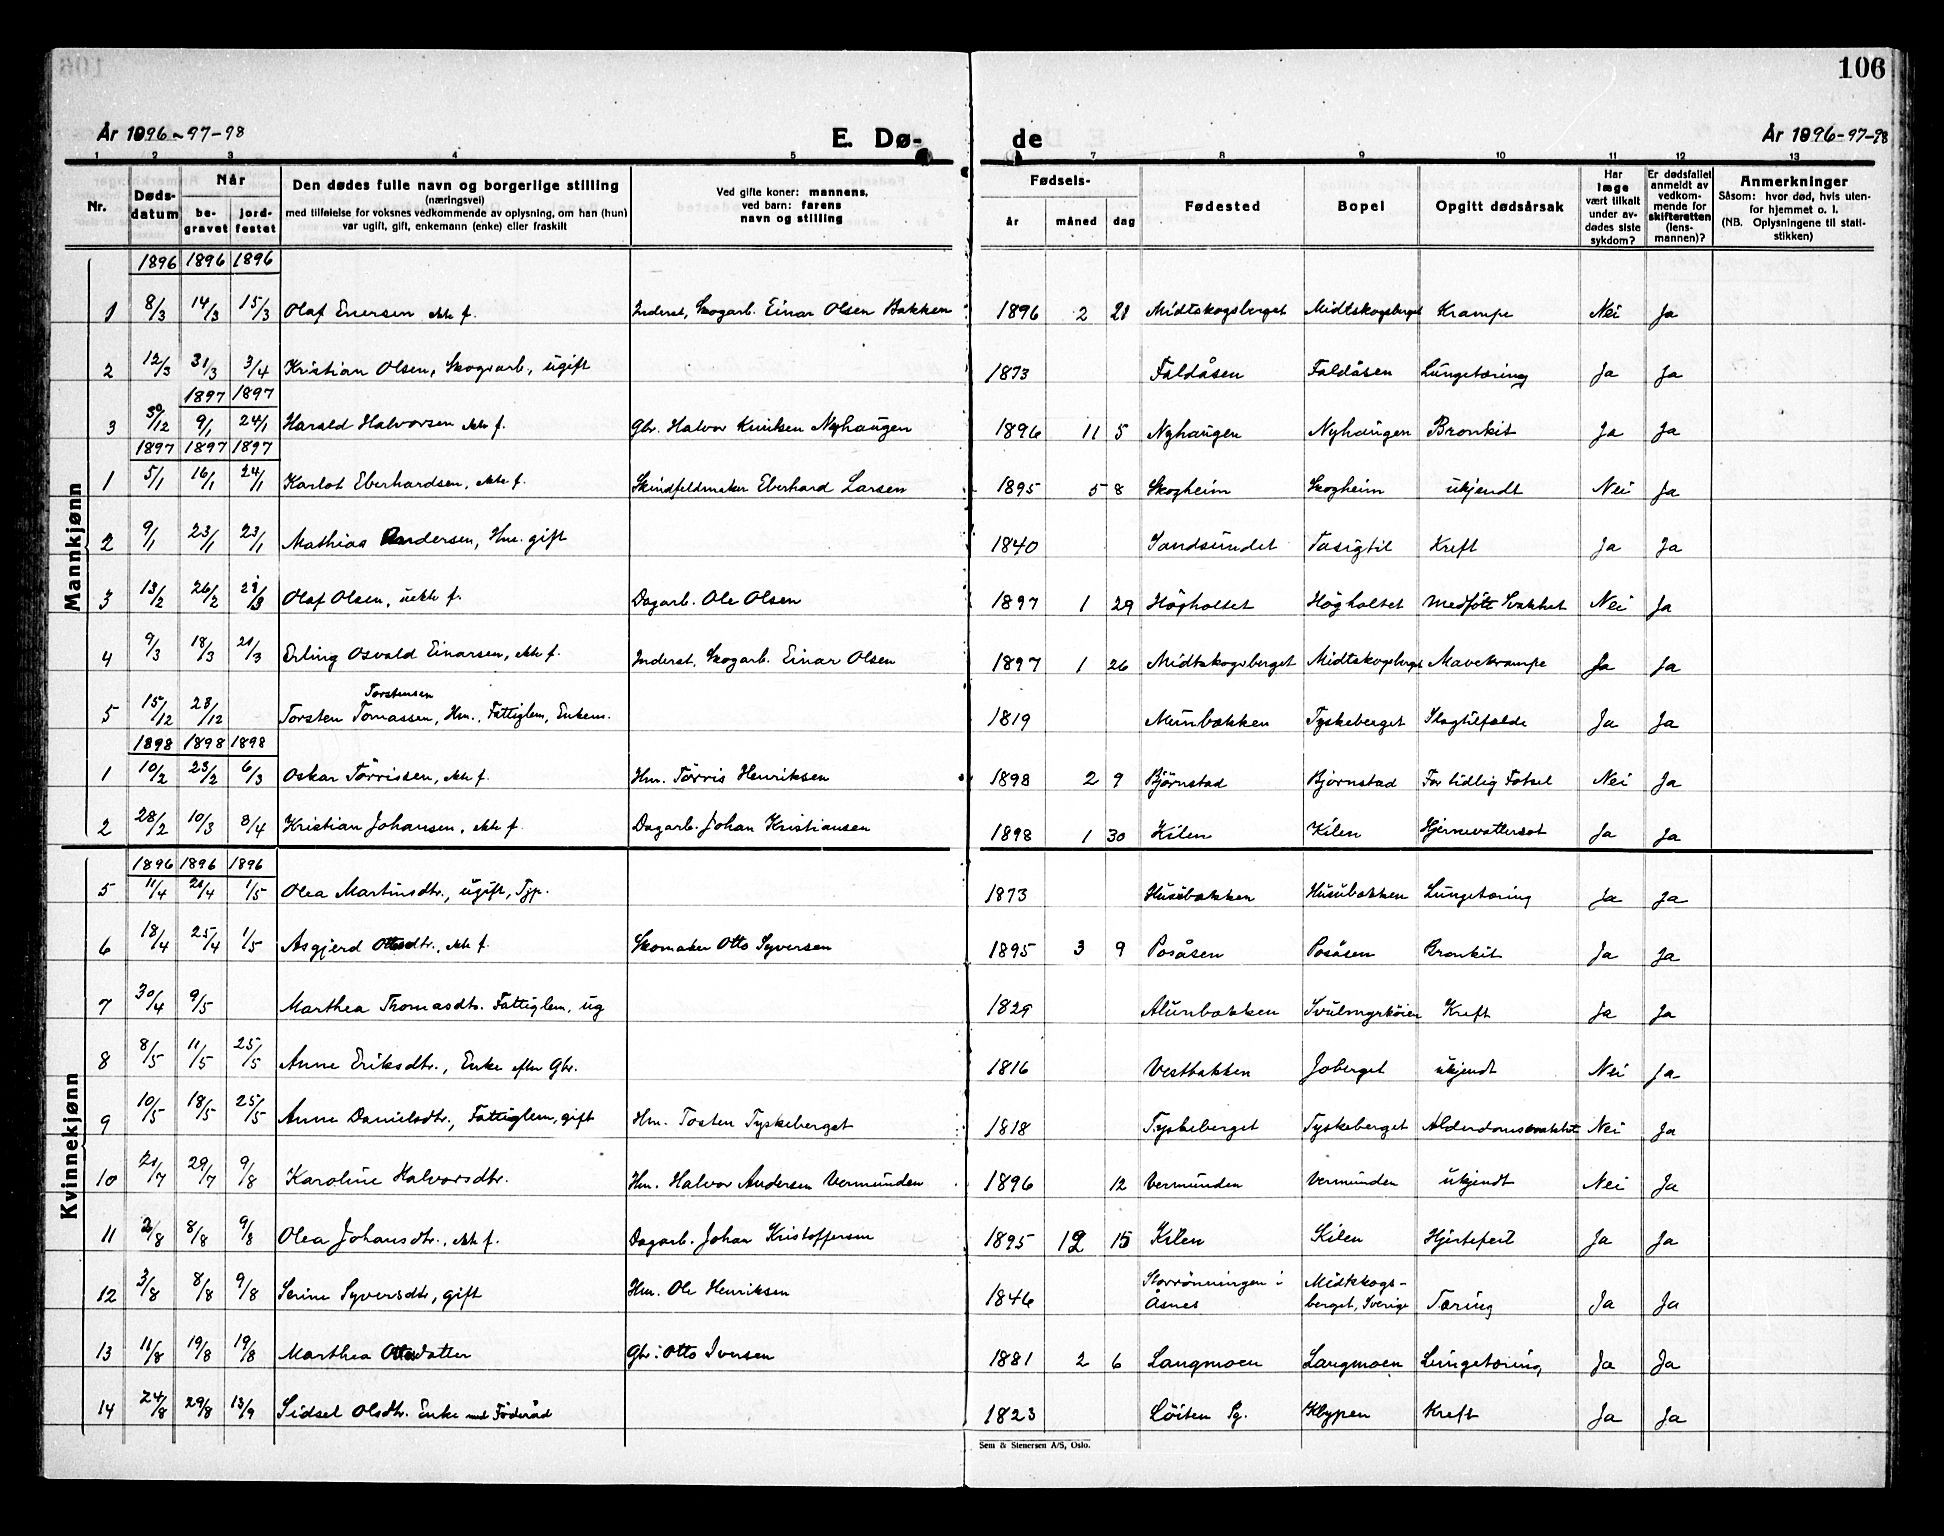 106
År 1896-97-98
E. Dø-
de
År 1896-97-98
1 2 3 4 5 7 8 9 10 11 12 13
Nr.
Døds-
datum
Når
be-
gravet
jord-
festet
Den dødes fulle navn og borgerlige stilling
(næringsvei)
med tilføielse for voksnes vedkommende av oplysning, om han (hun)
var ugift, gift, enkemann (enke) eller fraskilt
Ved gifte koner: mannens,
ved barn: farens
navn og stilling
Fødsels-
år måned dag
Fødested
Bopel
Opgitt dødsårsak
Har
læge
vært tilkalt
under av-
dødes siste
sykdom?
Er dødsfallet
anmeldt av
vedkom-
mende for
skifteretten
(lens-
mannen)?
Anmerkninger
Såsom: hvor død, hvis uten-
for hjemmet o. l.
(NB. Oplysningene til stati-
stikken)
Mannkjønn
1896 1896 1896
1 8/3 14/3 15/3 Olaf Enersen ekte f. Inderst, Skogarb. Einar Olsen Bakken 1896 2 28 Midtskogsberget Midtskogsberget Krampe Nei Ja
2 12/3 31/3 3/4 Kristian Olsen, Skogarb., ugift 1873 Faldåsen Faldåsen Lungetæring Ja Ja
1897 1897
3 30/12 9/1 24/1 Harald Halvorsen ekte f. Gbr. Halvor Knutsen Nyhaugen 1896 11 5 Nyhaugen Nyhaugen Bronkit Ja Ja
1897 1897 1897
1 5/1 16/1 24/1 Karlot Eberhardsen, ekte f. Skindfeldmaker Eberhard Larsen 1895 5 8 Skogheim Skogheim ukjendt Nei Ja
2 9/1 23/1 23/1 Mathias Andersen, Hm. gift 1840 Sandsundet Tasigtil Kreft Ja Ja
3 13/2 26/2 28/3 Olaf Olsen, uekte f. Dagarb. Ole Olsen 1897 1 29 Högholtet Högholtet Medfött Svakhet Nei Ja
4 9/3 18/3 21/3 Erling Osvald Einarsen, ekte f. Inderst, Skogarb. Einar Olsen 1897 1 26 Midtskogsberget Midtskogsberget Mavekrampe Ja Ja
Torstensen
5 15/12 28/12 Torsten Tomassen, Hm., Fattiglem, Enkem. 1819 Munbakken Tyskeberget Slagtilfælde Ja Ja
1898 1898 1898
1 10/2 23/2 6/3 Oskar Törrissen, ekte f. Hm. Törris Henriksen 1898 2 9 Bjørnstad Bjørnstad For tidlig Fötsel Nei Ja
2 28/2 10/3 8/4 Kristian Johansen, ekte f. Dagarb. Johan Kristiansen 1898 1 30 Kilen Kilen Hjernevattersot Ja Ja
Kvinnekjønn
1896 1896 1896
5 11/4 21/4 1/5 Olea Martinsdtr., ugift, Tjp. 1873 Husubakken Husubakken Lungetæring Ja Ja
6 18/4 25/4 1/5 Asgjerd Ottosdtr., ekte f. Skomaker Otto Syversen 1895 3 9 Posåsen Posåsen Bronkit Ja Ja
7 30/4 9/5 Marthea Thomasdtr. Fattiglem, ug 1829 Alunbakken Svulmyrköien Kreft Ja Ja
8 8/5 11/5 25/5 Anne Eriksdtr., Enke efter Gbr. 1816 Vestbakken Joberget ukjendt Nei Ja
9 10/5 18/5 25/5 Anne Danielsdtr., Fattiglem, gift Hm. Tosten Tyskeberget 1818 Tyskeberget Tyskeberget Alderdomssvakhet Nei Ja
10 21/7 29/7 9/8 Karoline Halvorsdtr. Hm. Halvor Andersen Vermunden 1896 12 Vermunden Vermunden ukjendt Nei Ja
11 2/8 8/8 9/8 Olea Johansdtr., ekte f. Dagarb. Johan Kristoffersen 1895 12 15 Kilen Kilen Hjertefeil Ja Ja
12 3/8 8/8 9/8 Serine Syversdtr, gift Hm. Ole Henriksen 1846 Storrönningen i Åsnes Midtskogs-berget, Sverige Tæring Ja Ja
13 11/8 19/8 19/8 Marthea Ottosdatter Gbr. Otto Iversen 1881 2 6 Langmoen Langmoen Lungetæring Ja Ja
14 24/8 29/8 13/9 Sidsel Olsdtr. Enke med Föderåd 1823 Löiten Pg. Klypen Kreft Ja Ja
Sem & Stenersen A/S, Oslo.